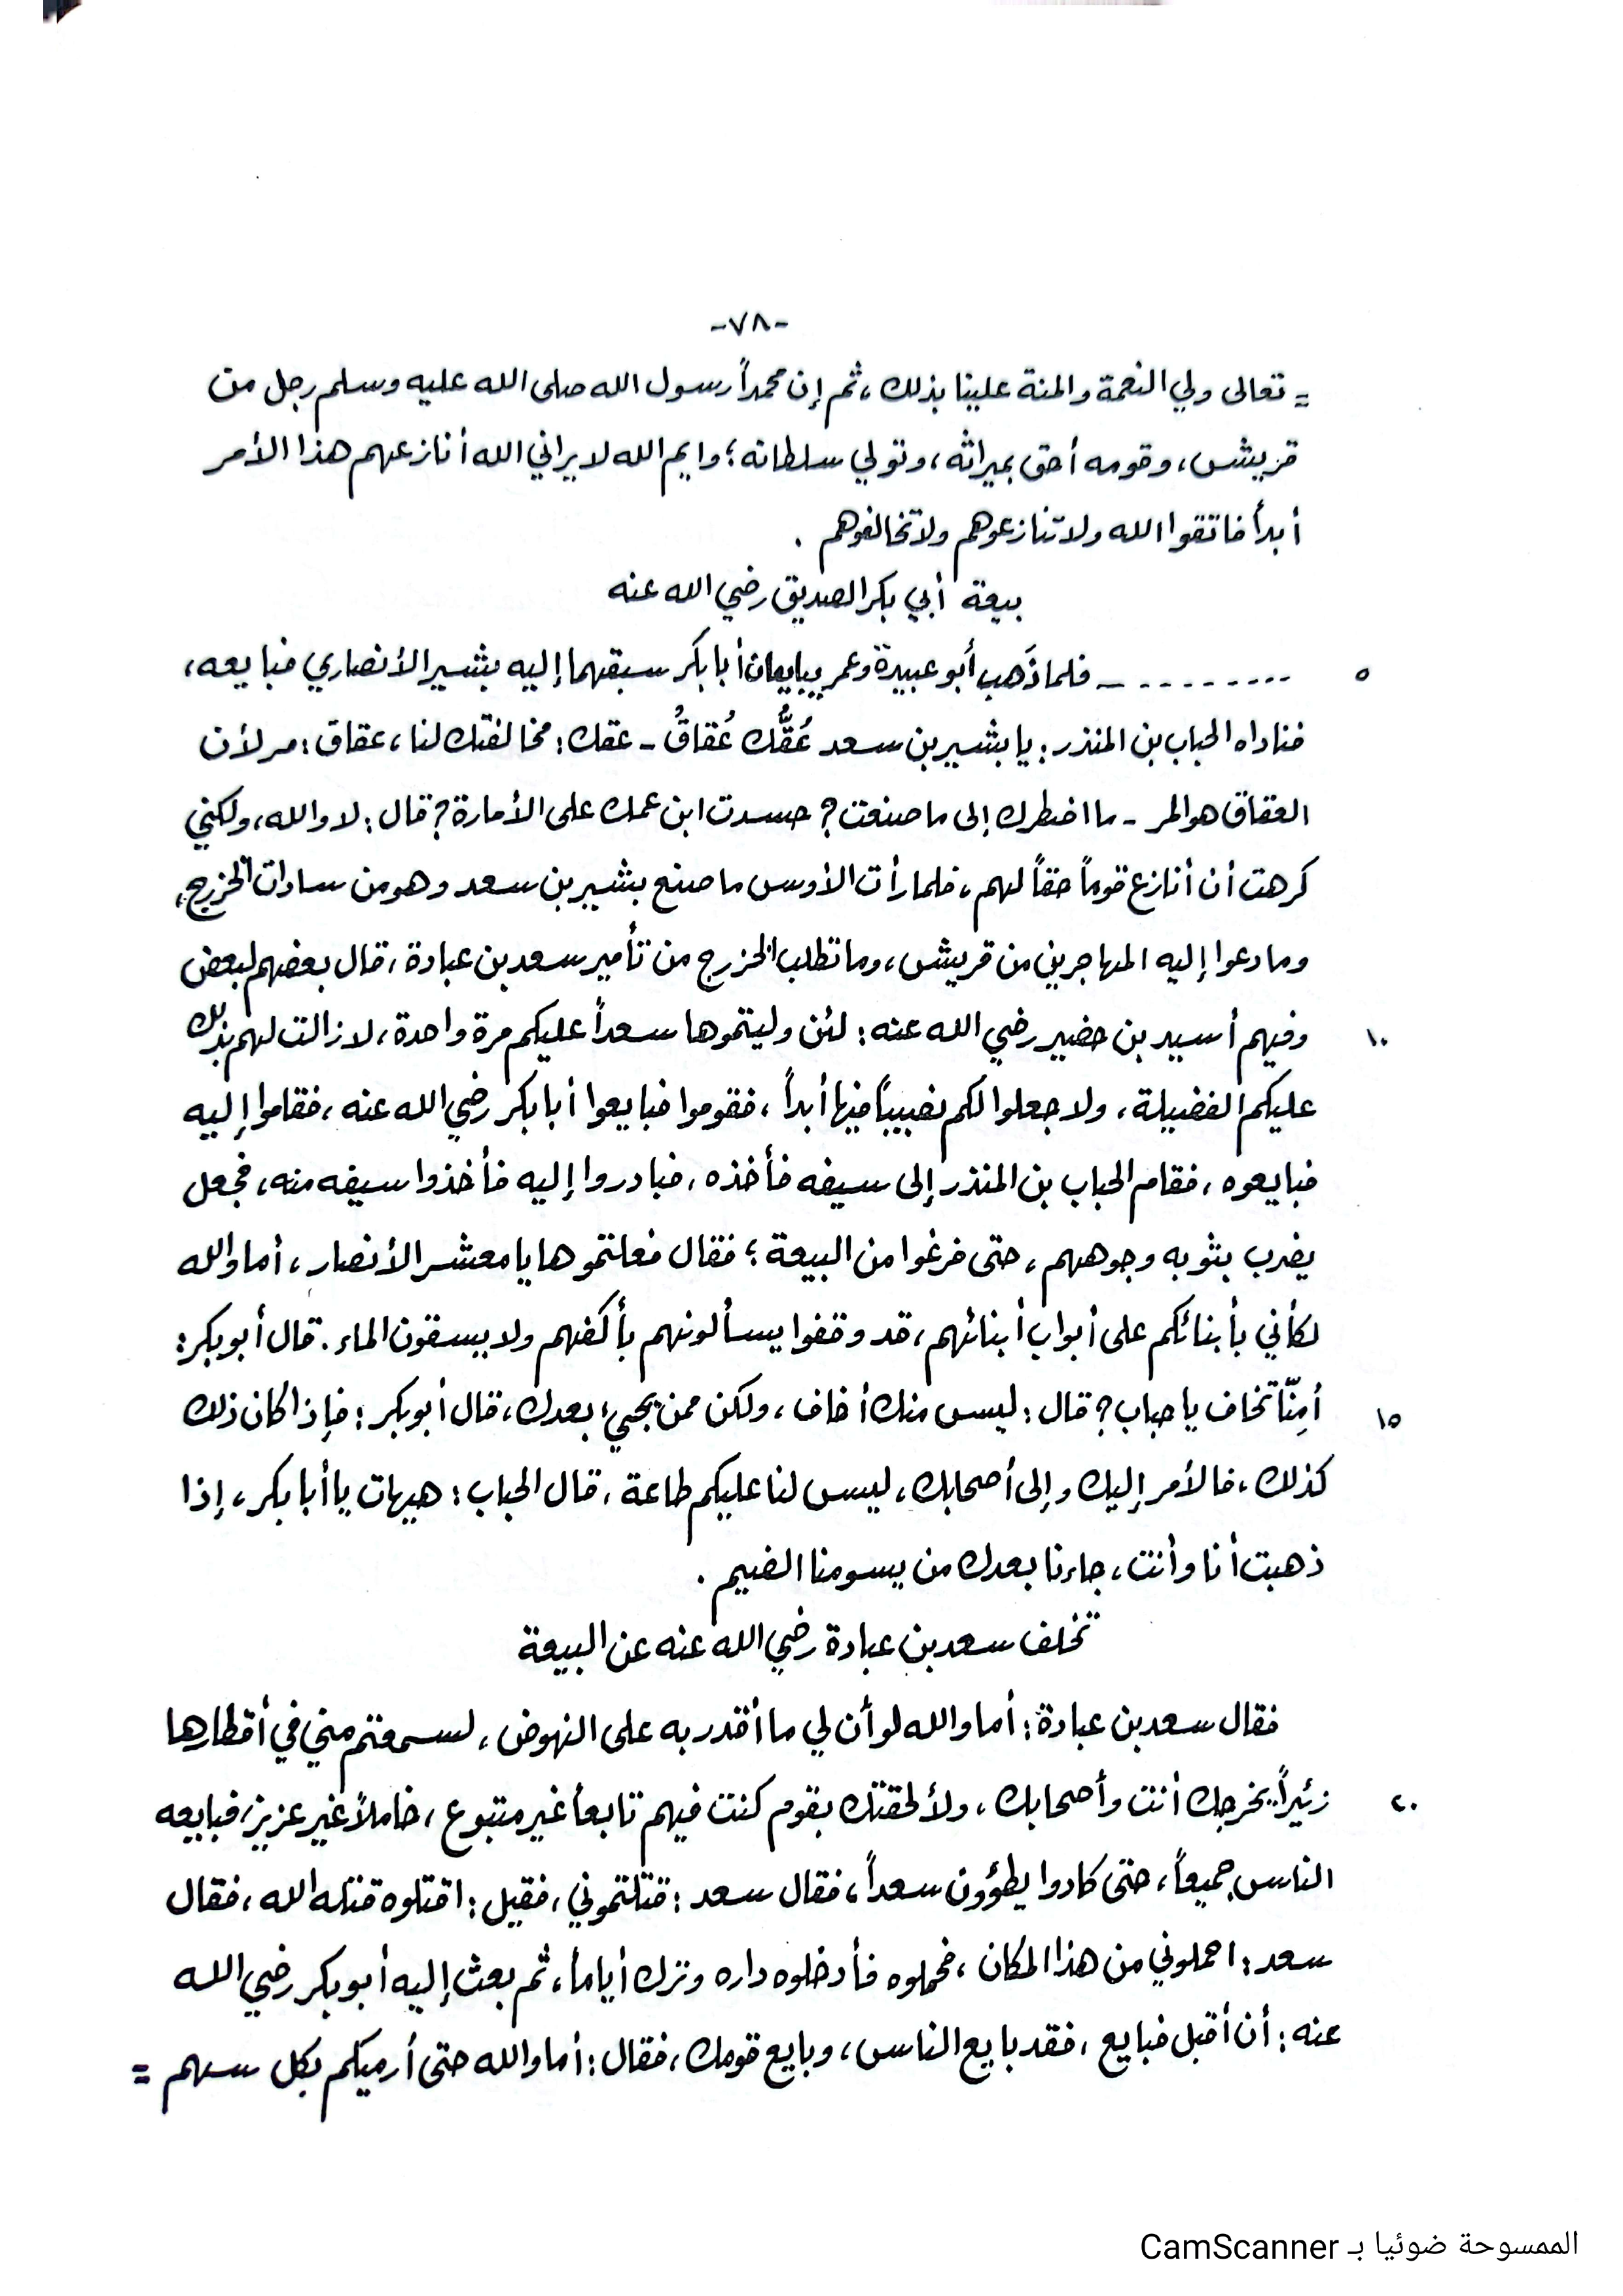 -٧٨-
= تعالى ولي النعمة والمنة علينا بذلك ، ثم إن محمداً رسول الله صلى الله عليه وسلم رجل من
قريش ، وقومه أحق بميراثه ، وتولي سلطانه ؛ وايم الله لا يراني الله أنازعهم هذا الأمر
أبداً فاتقوا الله ولا تنازعوهم ولا تخالفوهم .
بيعة أبي بكر الصديق رضي الله عنه
٥ ......... ـ فلما ذَهب أبو عبيدة وعمر يبايعان أبا بكر سبقهما إليه بشير الأنصاري فبايعه ،
فناداه الحباب بن المنذر : يا بشير بن سعد عُقُّك عُقاقُ - عقك : مخالفتك لنا ، عقاق : مر لأن
العقاق هو المر - ما اضطرك إلى ما صنعت ؟ حسدت ابن عمك على الأمارة ؟ قال : لا والله ، ولكني
كرهت أن أنازع قوماً حقاً لهم ، فلما رأت الأوس ما صنع بشير بن سعد وهو من سادات الخزرج ،
وما دعوا إليه المهاجرين من قريش ، وما تطلب الخزرج من تأمير سعد بن عبادة ، قال بعضهم لبعض
١٠ وفيهم أسيد بن حضير رضي الله عنه : لئن وليتموها سعداً عليكم مرة واحدة ، لا زالت لهم بذلك
عليكم الفضيلة ، ولا جعلوا لكم نصيباً فيها أبداً ، فقوموا فبايعوا أبا بكر رضي الله عنه ، فقاموا إليه
فبايعوه ، فقام الحباب بن المنذر إلى سيفه فأخذه ، فبادروا إليه فأخذوا سيفه منه ، فجعل
يضرب بثوبه وجوههم ، حتى فرغوا من البيعة ؛ فقال فعلتموها يا معشر الأنصار ، أما والله
لكأني بأبنائكم على أبواب أبنائهم ، قد وقفوا يسألونهم بأكفهم ولا يسقون الماء . قال أبو بكر :
١٥ أمِنّا تخاف يا حباب ؟ قال : ليس منك أخاف ، ولكن ممن يجيء بعدك ، قال أبو بكر : فإذا كان ذلك
كذلك ، فالأمر إليك وإلى أصحابك ، ليس لنا عليكم طاعة ، قال الحباب : هيهات يا أبا بكر ، إذا
ذهبت أنا وأنت ، جاءنا بعدك من يسومنا الضيم .
تخلف سعد بن عبادة رضي الله عنه عن البيعة
فقال سعد بن عبادة : أما والله لو أن لي ما أقدر به على النهوض ، لسمعتم مني في أقطارها
٢٠ زئيراً يخرجك أنت وأصحابك ، ولألحقتك بقوم كنت فيهم تابعاً غير متبوع ، خاملاً غير عزيز ، فبايعه
الناس جميعاً ، حتى كادوا يطؤون سعداً ، فقال سعد : قتلتموني ، فقيل : اقتلوه قتله الله ، فقال
سعد : احملوني من هذا المكان ، فحملوه فأدخلوه داره وترك أياماً ، ثم بعث إليه أبو بكر رضي الله
عنه : أن أقبل فبايع ، فقد بايع الناس ، وبايع قومك ، فقال : أما والله حتى أرميكم بكل سهم =
الممسوحة ضوئيا بـ CamScanner